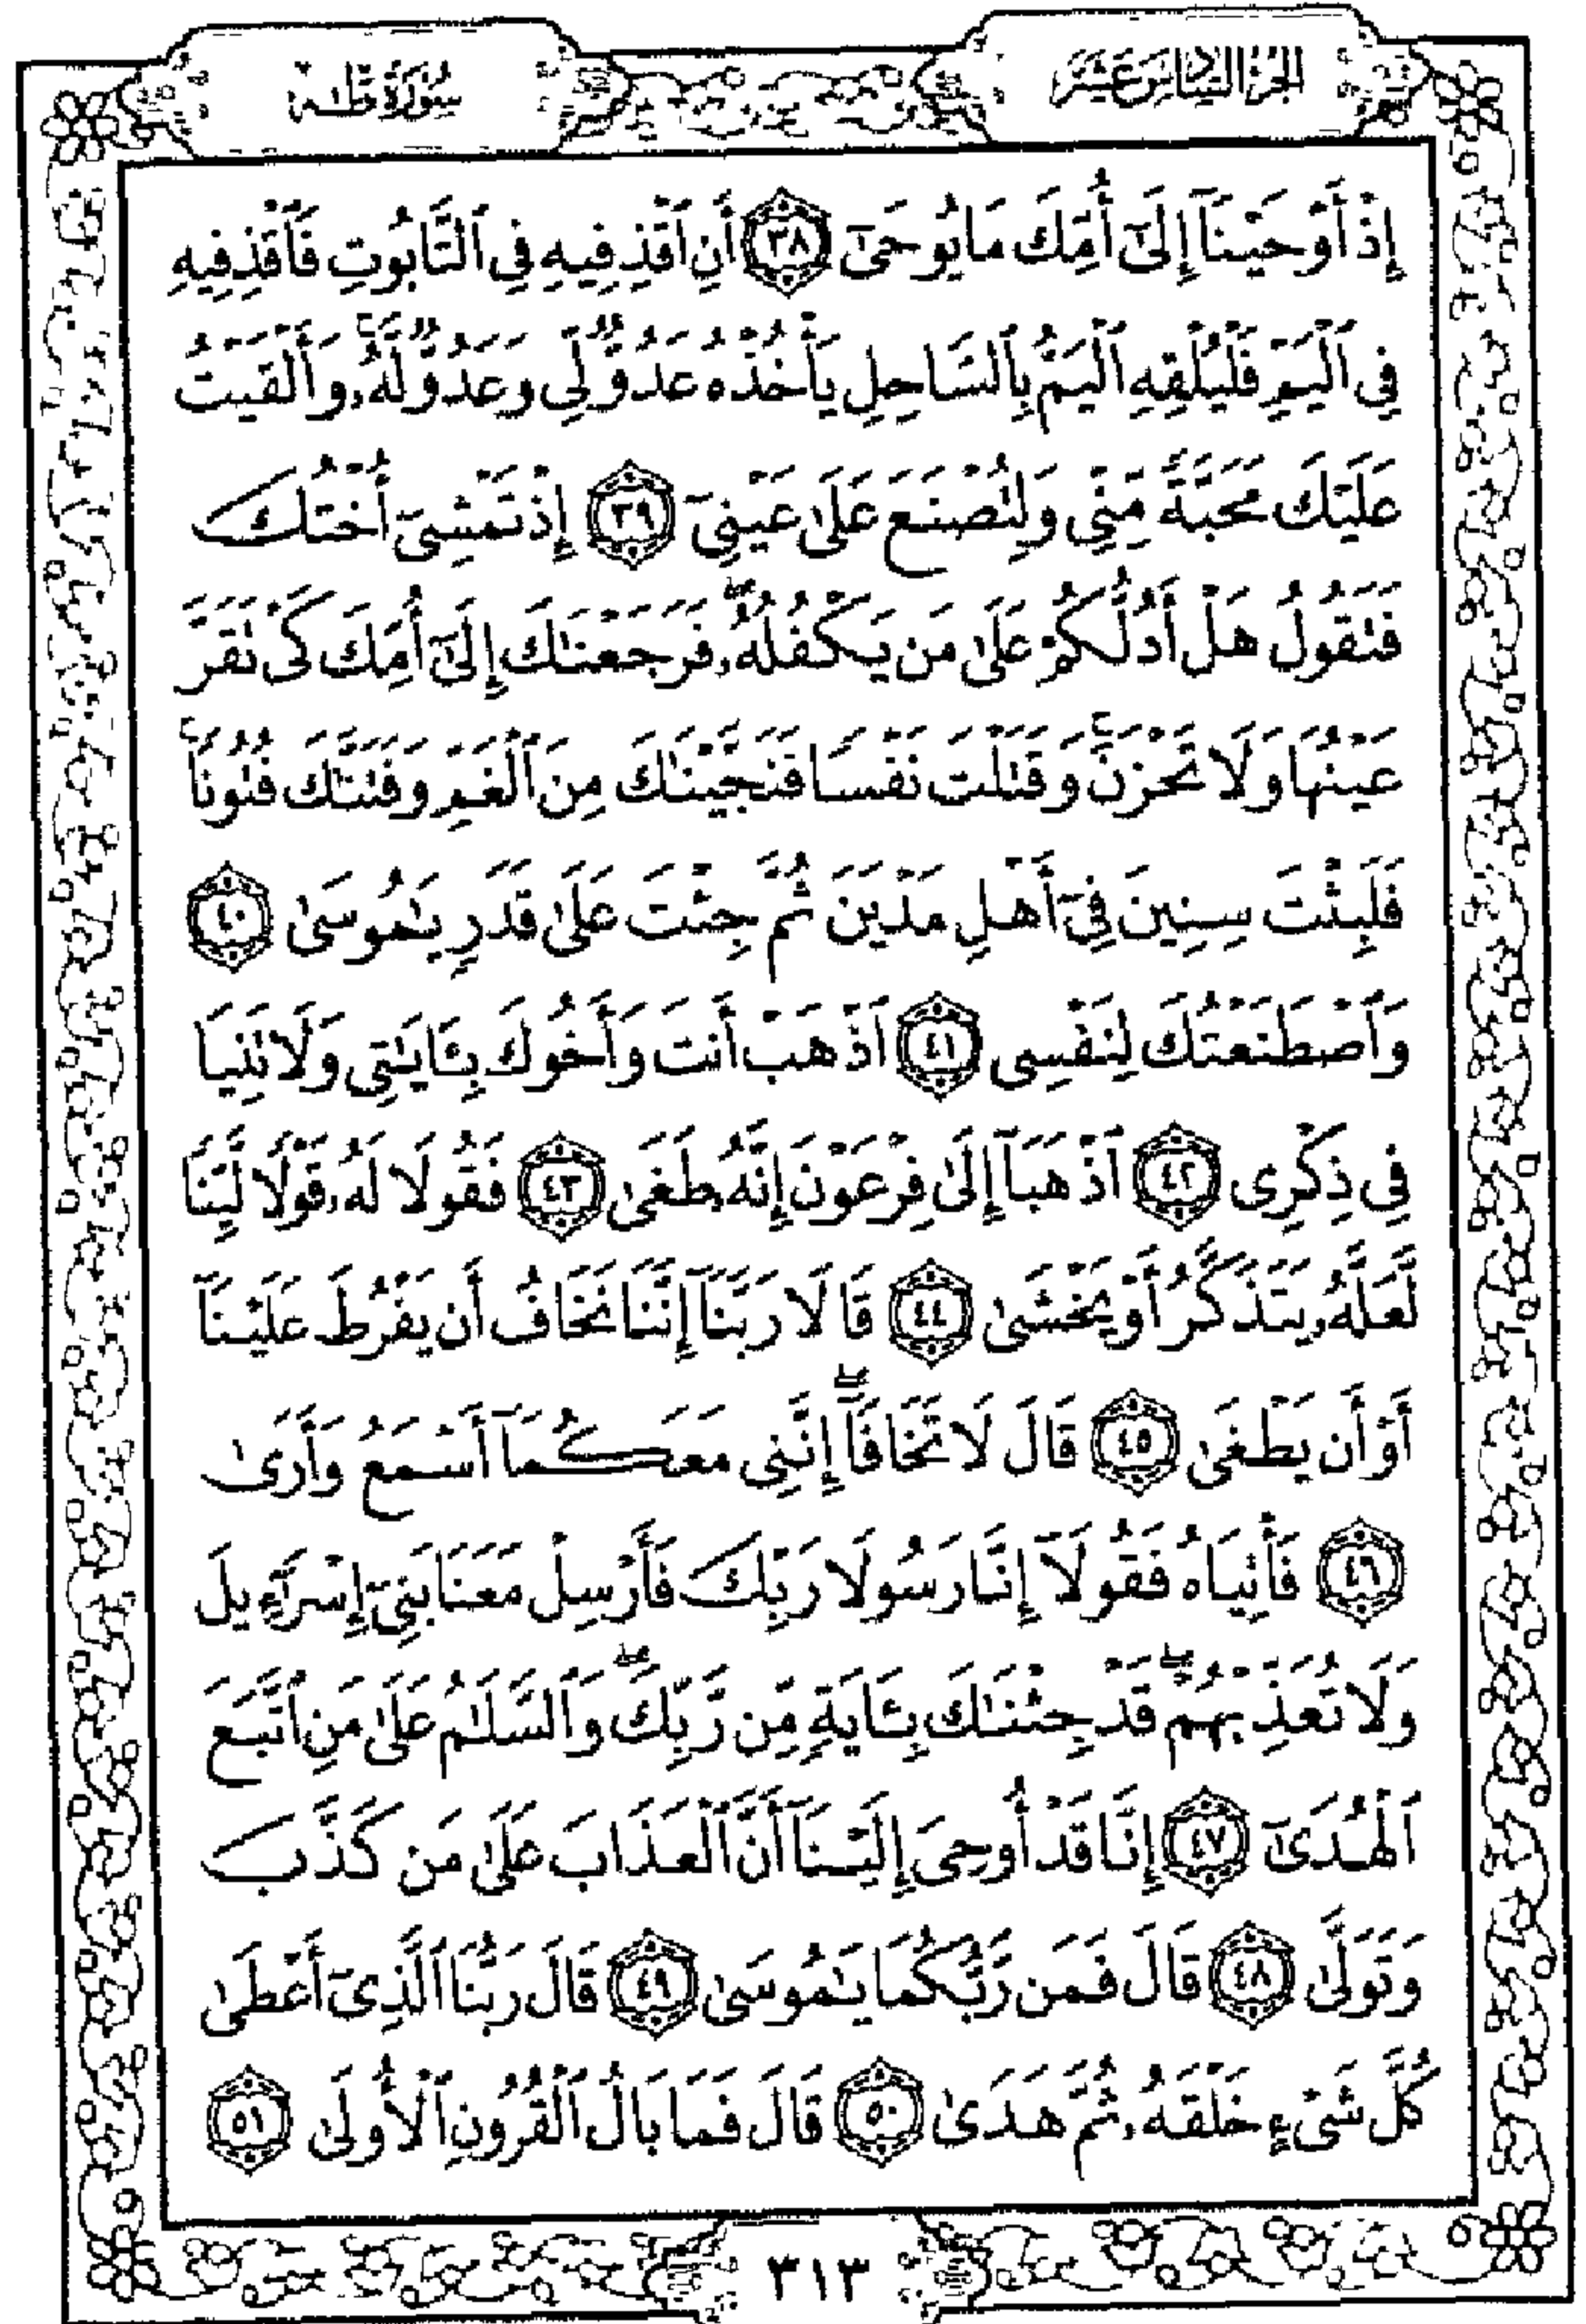 الجزء السادس عشر
سورة طه
إِذْ أَوْحَيْنَآ إِلَىٰٓ أُمِّكَ مَا يُوحَىٰٓ ٣٨ أَنِ ٱقْذِفِيهِ فِى ٱلتَّابُوتِ فَٱقْذِفِيهِ
فِى ٱلْيَمِّ فَلْيُلْقِهِ ٱلْيَمُّ بِٱلسَّاحِلِ يَأْخُذْهُ عَدُوٌّ لِّى وَعَدُوٌّ لَّهُۥ ۚ وَأَلْقَيْتُ
عَلَيْكَ مَحَبَّةً مِّنِّى وَلِتُصْنَعَ عَلَىٰ عَيْنِىٓ ٣٩ إِذْ تَمْشِىٓ أُخْتُكَ
فَتَقُولُ هَلْ أَدُلُّكُمْ عَلَىٰ مَن يَكْفُلُهُۥ ۖ فَرَجَعْنَٰكَ إِلَىٰٓ أُمِّكَ كَىْ تَقَرَّ
عَيْنُهَا وَلَا تَحْزَنَ ۚ وَقَتَلْتَ نَفْسًا فَنَجَّيْنَٰكَ مِنَ ٱلْغَمِّ وَفَتَنَّٰكَ فُتُونًا ۚ
فَلَبِثْتَ سِنِينَ فِىٓ أَهْلِ مَدْيَنَ ثُمَّ جِئْتَ عَلَىٰ قَدَرٍ يَٰمُوسَىٰ ٤٠
وَٱصْطَنَعْتُكَ لِنَفْسِى ٤١ ٱذْهَبْ أَنتَ وَأَخُوكَ بِـَٔايَٰتِى وَلَا تَنِيَا
فِى ذِكْرِى ٤٢ ٱذْهَبَآ إِلَىٰ فِرْعَوْنَ إِنَّهُۥ طَغَىٰ ٤٣ فَقُولَا لَهُۥ قَوْلًا لَّيِّنًا
لَّعَلَّهُۥ يَتَذَكَّرُ أَوْ يَخْشَىٰ ٤٤ قَالَا رَبَّنَآ إِنَّنَا نَخَافُ أَن يَفْرُطَ عَلَيْنَآ
أَوْ أَن يَطْغَىٰ ٤٥ قَالَ لَا تَخَافَآ ۖ إِنَّنِى مَعَكُمَآ أَسْمَعُ وَأَرَىٰ
٤٦ فَأْتِيَاهُ فَقُولَآ إِنَّا رَسُولَا رَبِّكَ فَأَرْسِلْ مَعَنَا بَنِىٓ إِسْرَٰٓءِيلَ
وَلَا تُعَذِّبْهُمْ ۖ قَدْ جِئْنَٰكَ بِـَٔايَةٍ مِّن رَّبِّكَ ۖ وَٱلسَّلَٰمُ عَلَىٰ مَنِ ٱتَّبَعَ
ٱلْهُدَىٰٓ ٤٧ إِنَّا قَدْ أُوحِىَ إِلَيْنَآ أَنَّ ٱلْعَذَابَ عَلَىٰ مَن كَذَّبَ
وَتَوَلَّىٰ ٤٨ قَالَ فَمَن رَّبُّكُمَا يَٰمُوسَىٰ ٤٩ قَالَ رَبُّنَا ٱلَّذِىٓ أَعْطَىٰ
كُلَّ شَىْءٍ خَلْقَهُۥ ثُمَّ هَدَىٰ ٥٠ قَالَ فَمَا بَالُ ٱلْقُرُونِ ٱلْأُولَىٰ ٥١
٣١٣